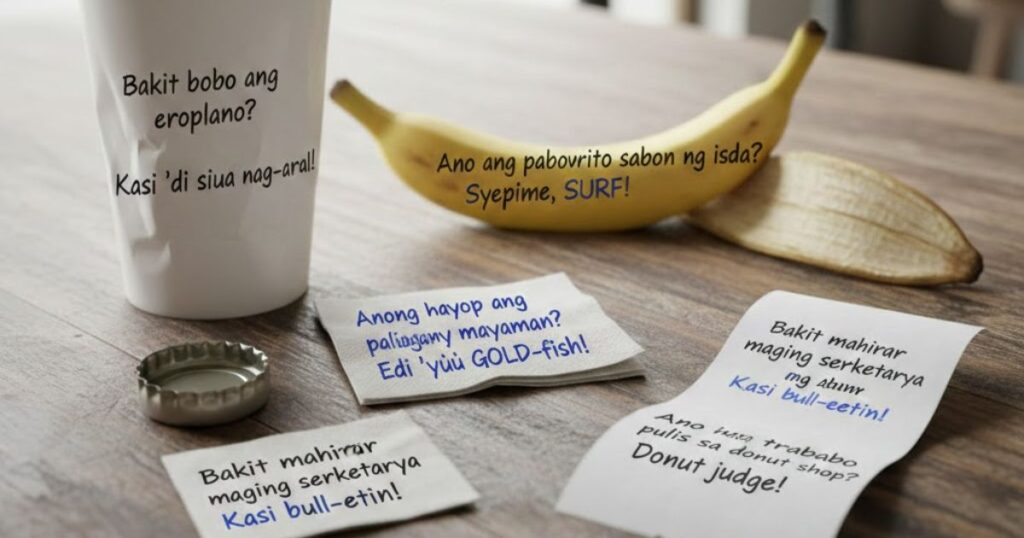 Bakit bobo ang
eroplano?
Kasi 'di siua nag-aral!
Ano ang pabovrito sabon ng isda?
Syepime, SURF!
Anong hayop ang
mayaman?
Edi 'yùù GOLD-fish!
Bakit mahirar
maging serketarya
Kasi bull-etin!
Bakit mahirar
maging serketarya
Kasi bull-eetin!
Ano trababo
pulis sa donut shop?
Donut judge!